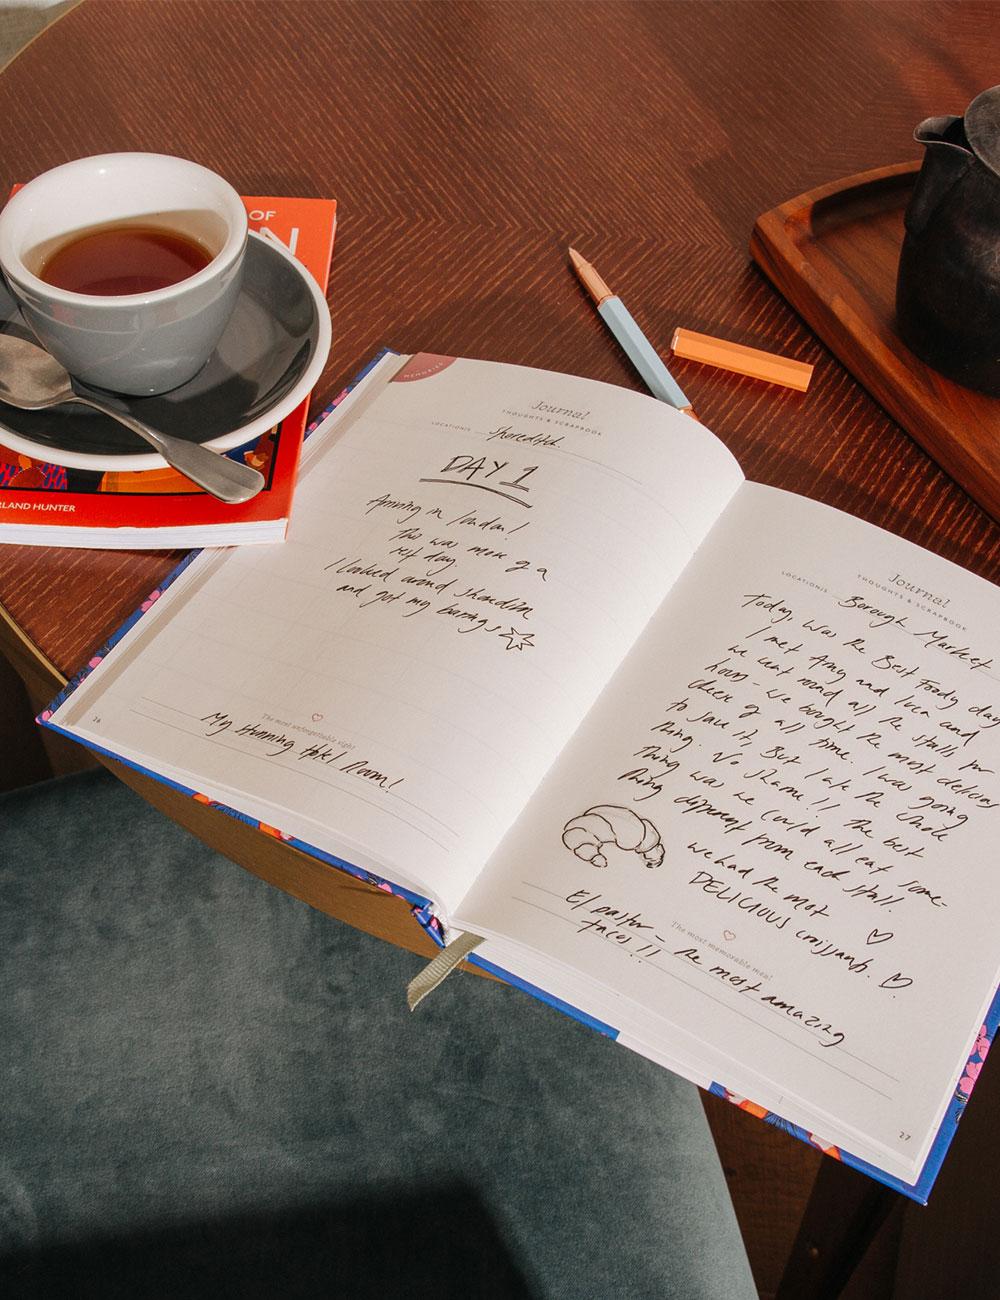 OF
N
RLAND HUNTER
MEMORIES
Journal
THOUGHTS & SCRAPBOOK
LOCATION/S Shoreditch
DAY 1
Arriving in London!
This was more of a
rest day.
I looked around shoreditch
and got my barings
The most unforgettable sight
My stunning hotel room!
26
Journal
THOUGHTS & SCRAPBOOK
LOCATION/S Borough Market
Today, was the Best Foody day
I met Amy and Luca and
we went round all the stalls for
hours - we bought the most delicious
cheese of all time. I was going
to save it, But I ate the whole
thing. No shame!! The best
thing was we could all eat some-
thing different from each stall.
we had the most
DELICIOUS croissants.
The most memorable meal
El pastor - the most amazing
tacos!!!
27